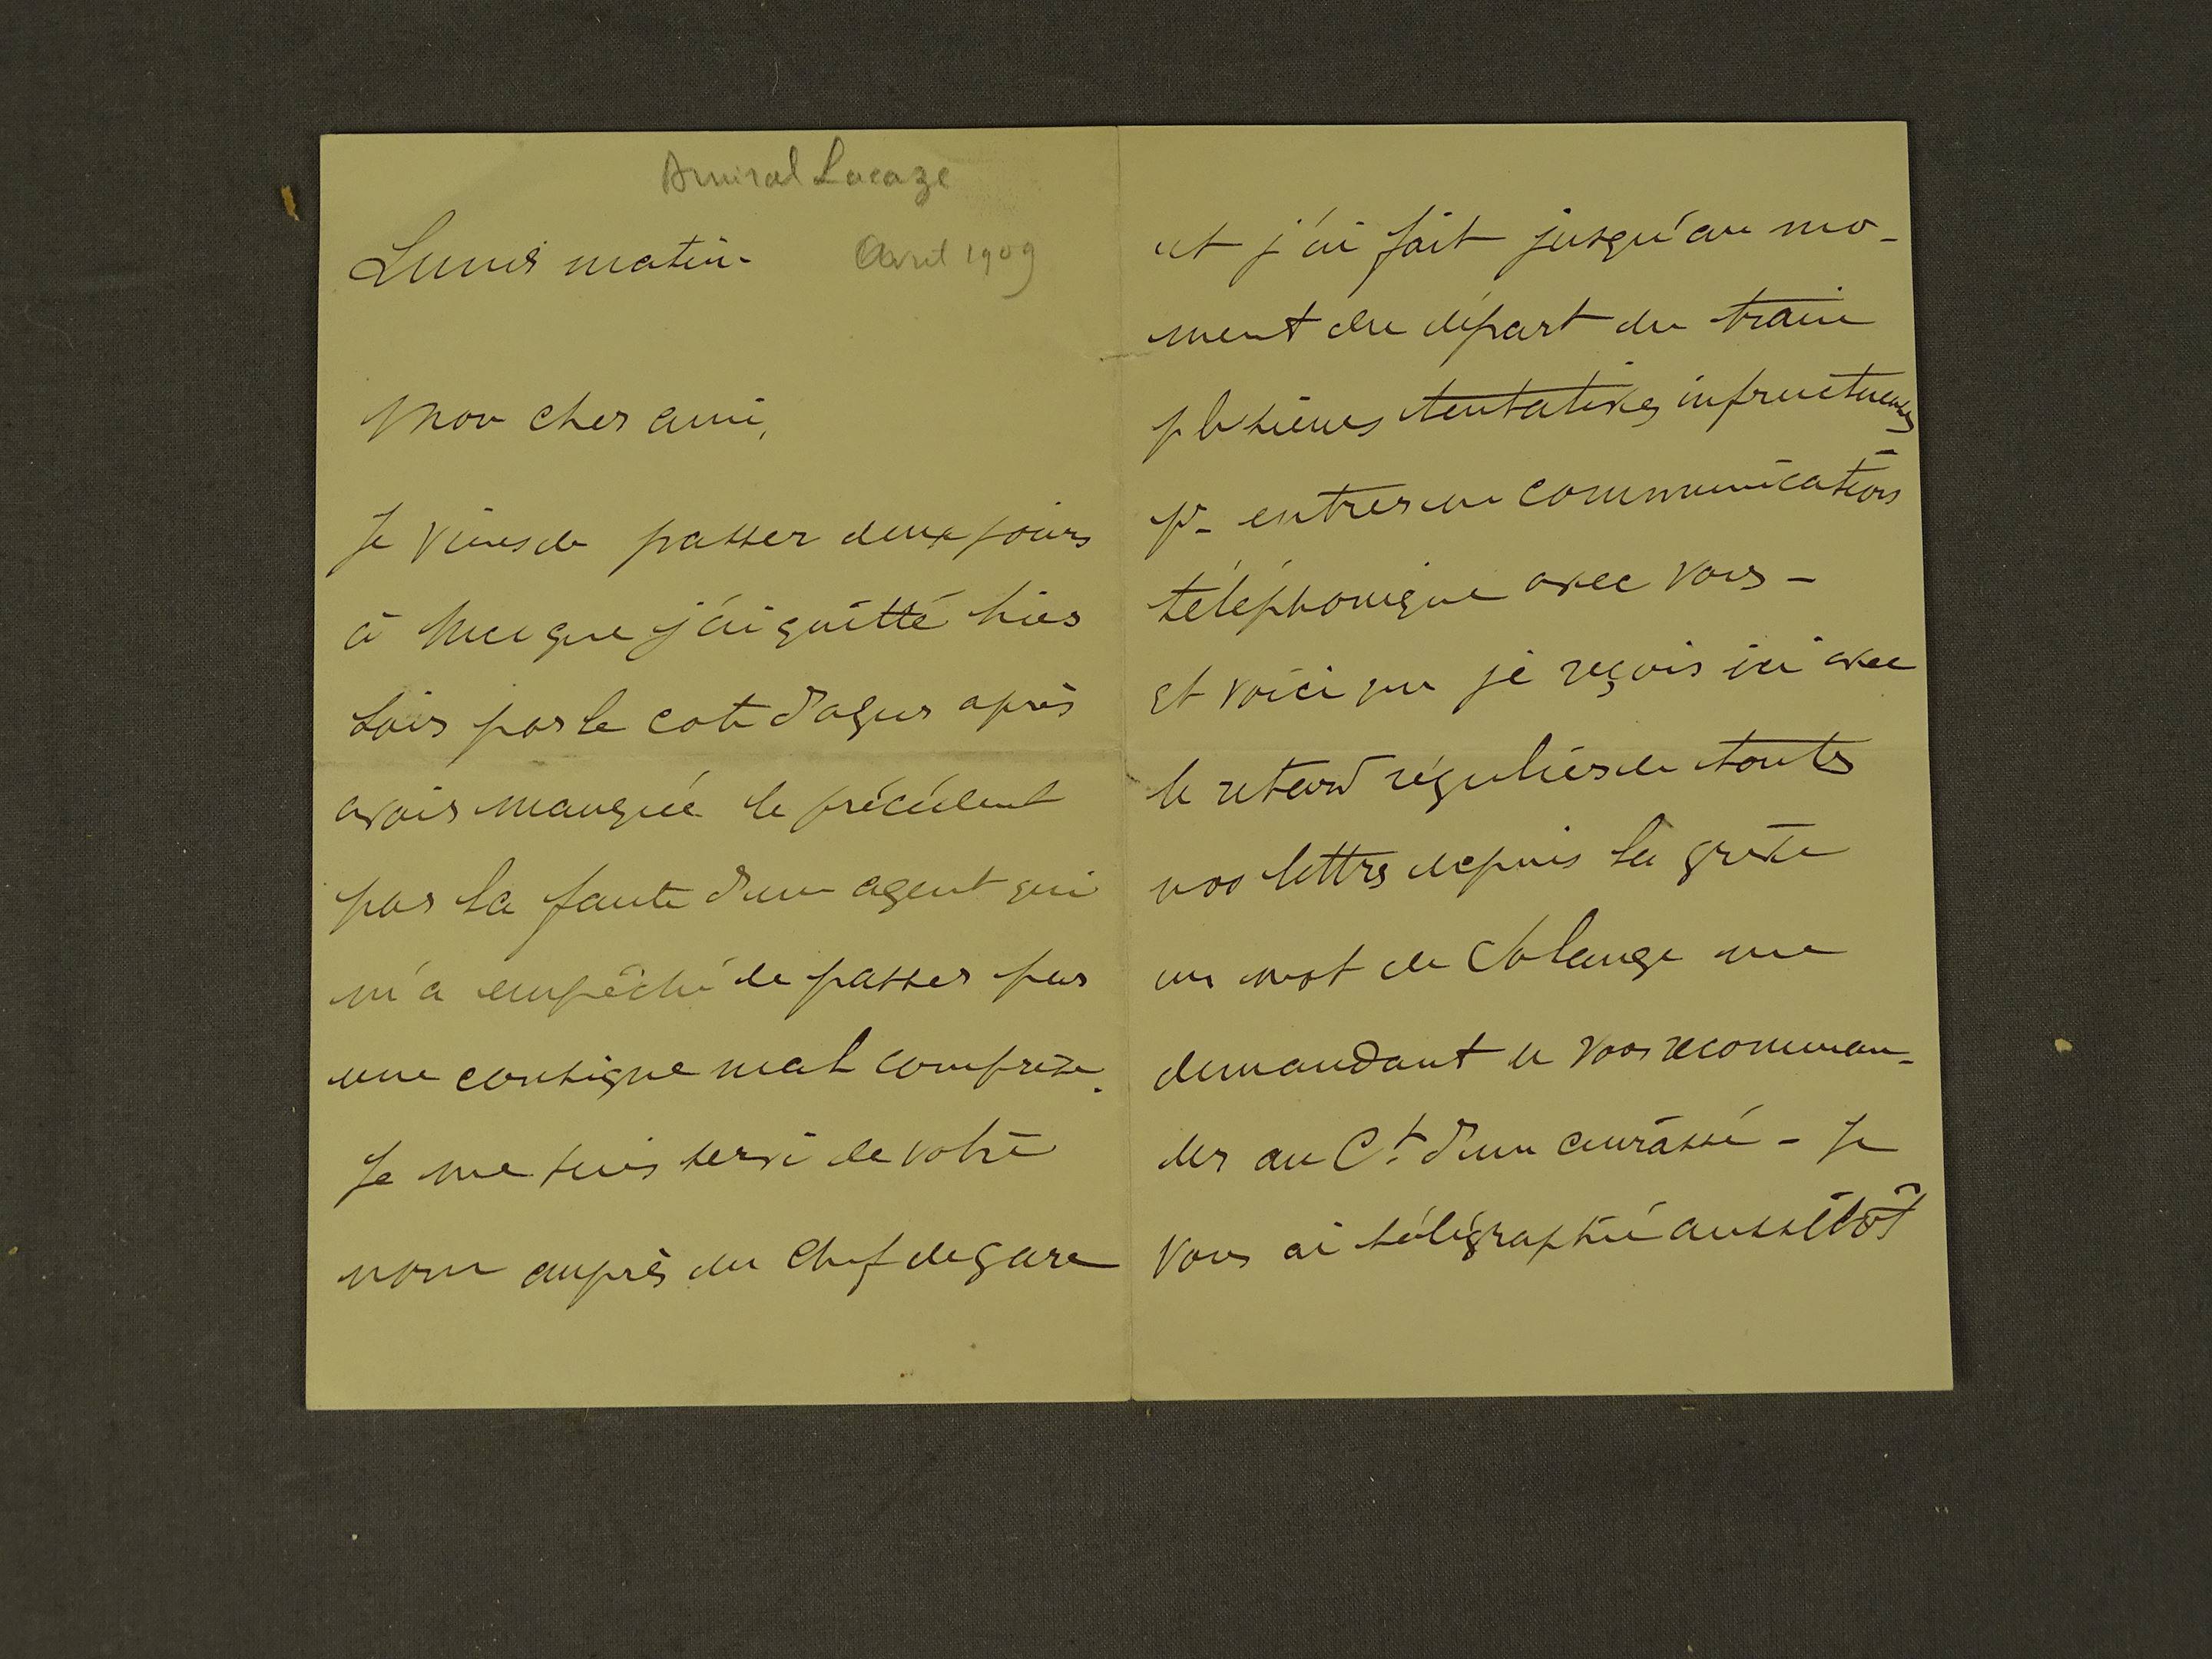 Amiral Lacaze
Lundi matin - Avril 1909
Mon cher ami,
Je viens de passer deux jours
à Nice que j'ai quitté hier
soir par le cote d'azur après
avoir manqué le précédent
par la faute d'un agent qui
m'a empêché de passer par
une consigne mal comprise.
Je me suis servi de votre
nom auprès du chef de gare
et j'ai fait jusqu'au mo-
ment du départ du train
plusieurs tentatives infructueuses
pr entrer en communication
téléphonique avec vous -
et voici que je reçois ici avec
le retard régulier de toutes
nos lettres depuis la grève
un mot de Solange me
demandant de vous recomman-
der au Ct d'un cuirassé - Je
vous ai télégraphié aussitôt